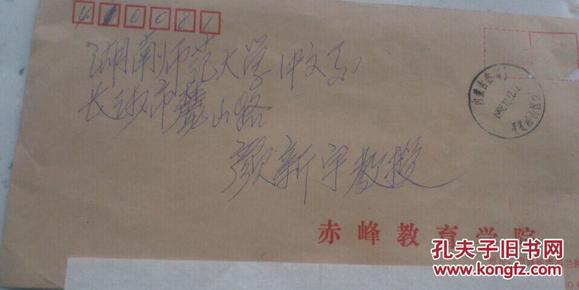 410081
湖南师范大学(中文系)
长沙市麓山路
颜新宇教授
赤峰教育学院
孔夫子旧书网
www.kongfz.com